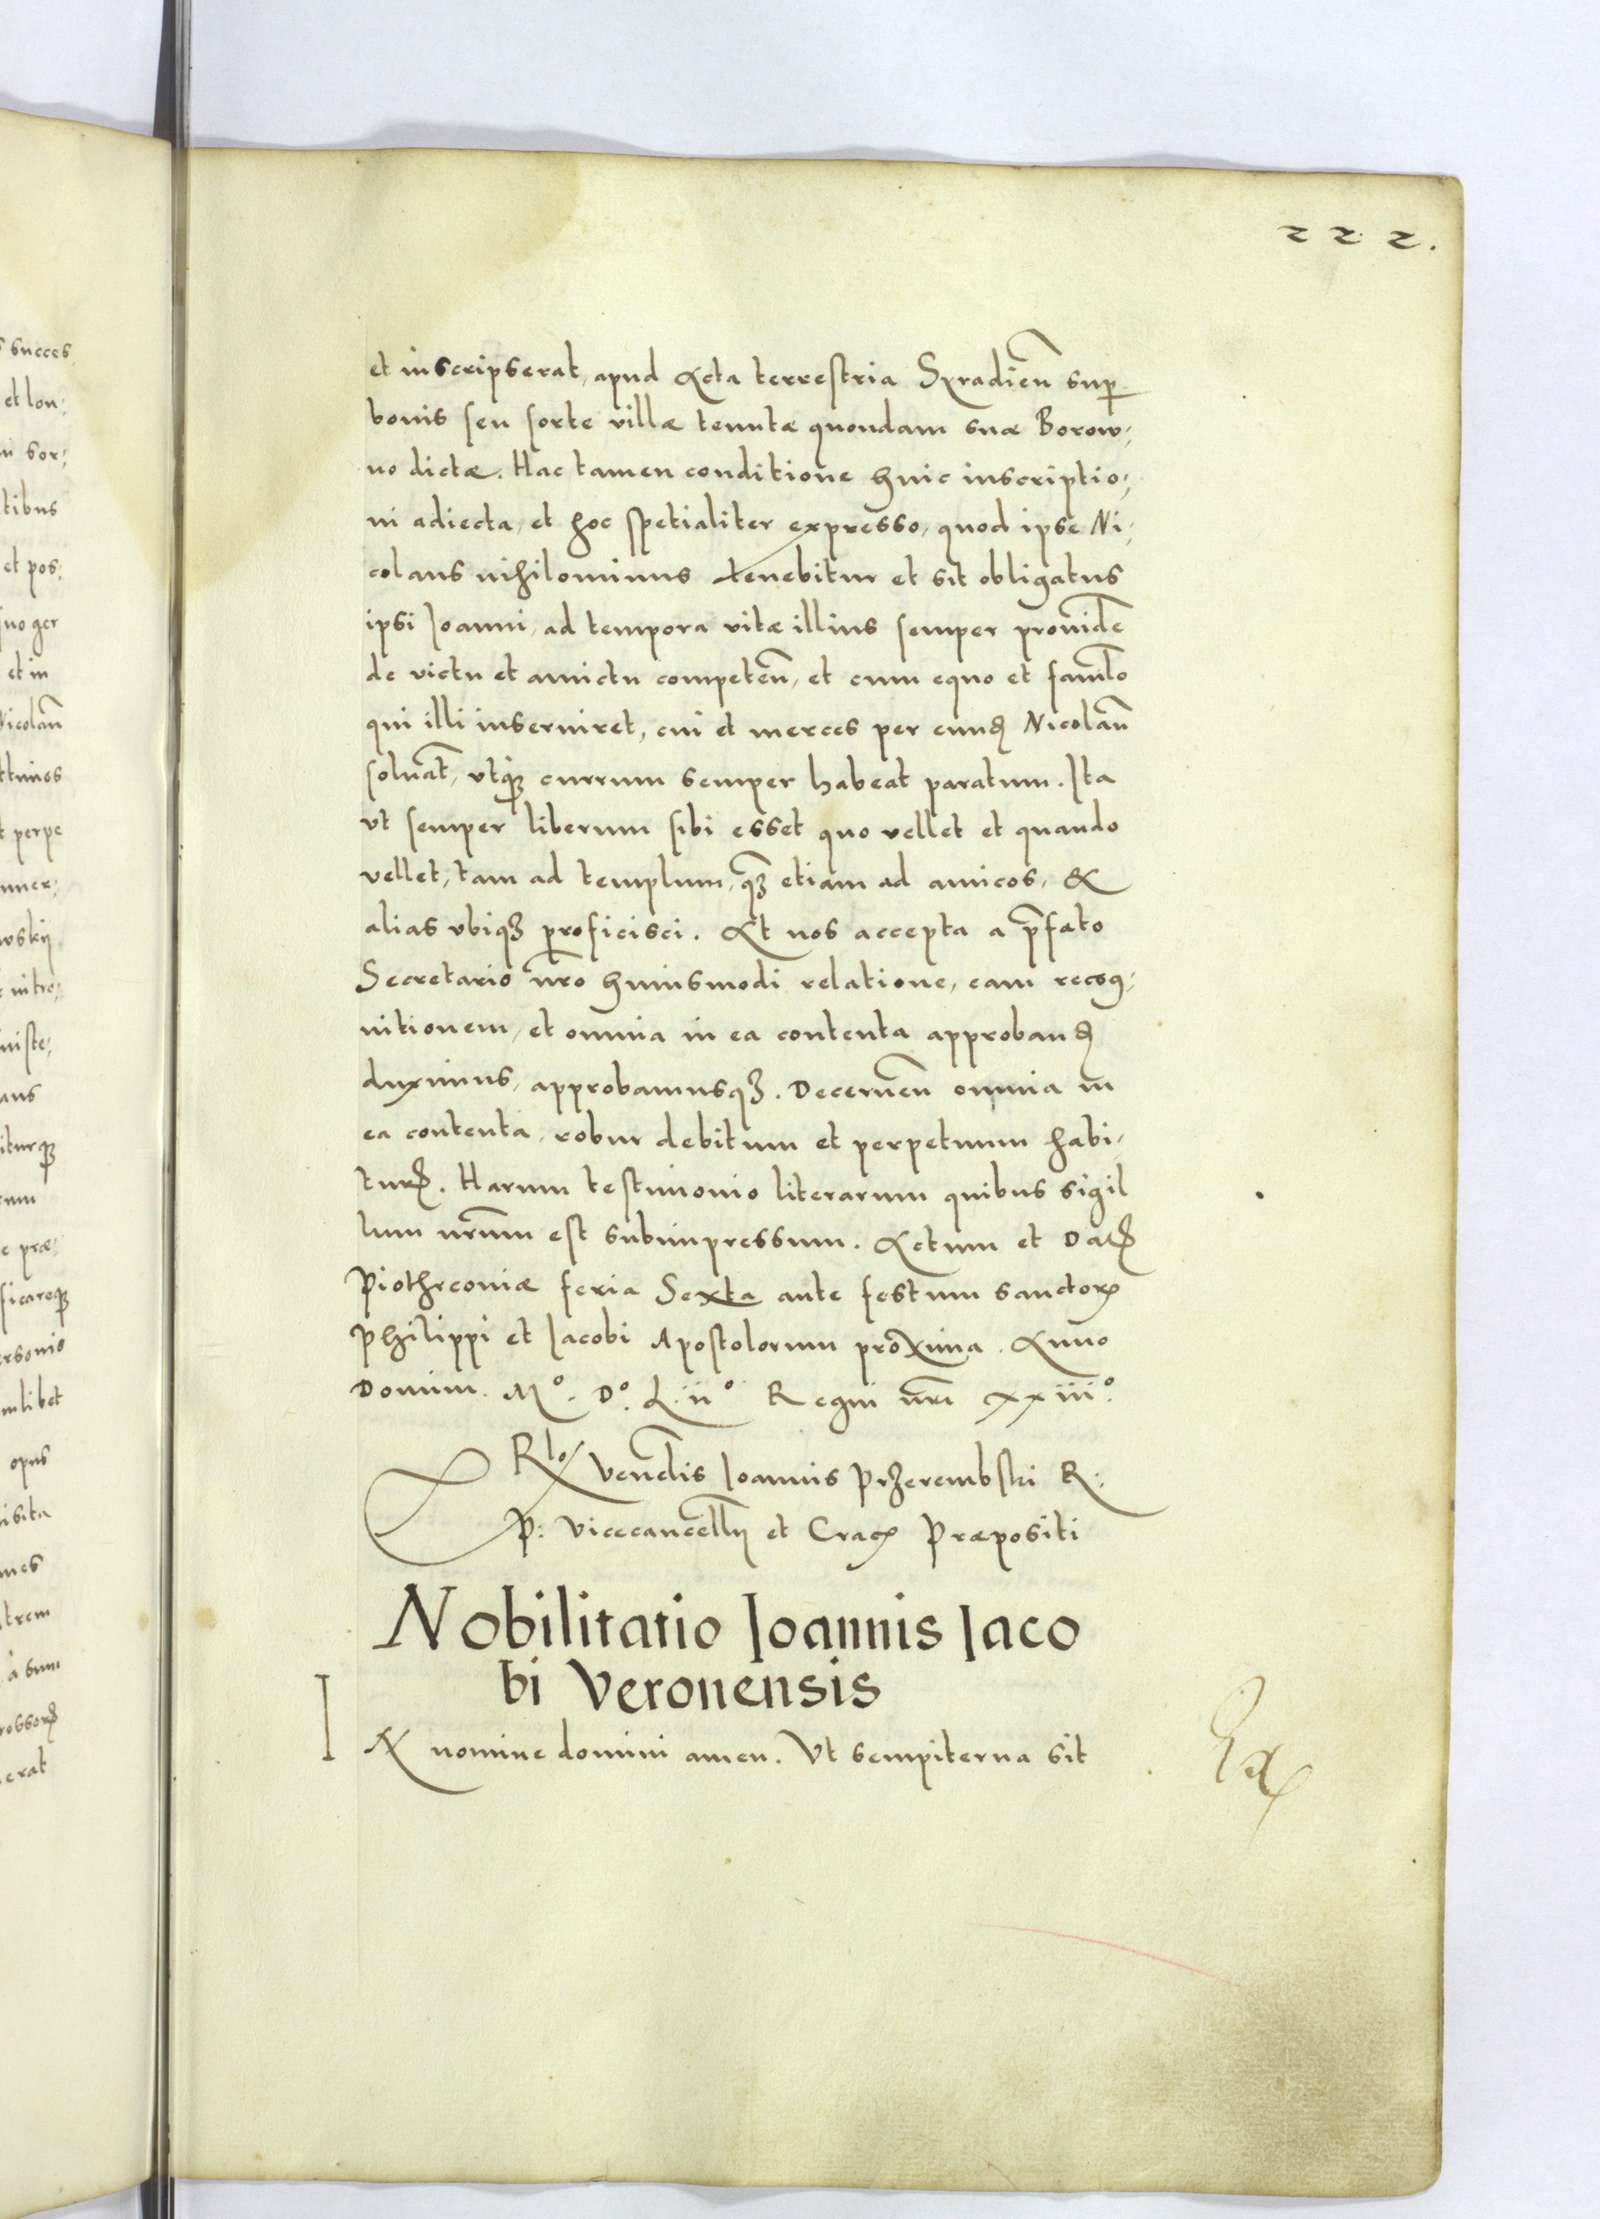 222.
et inscripserat, apud Acta terrestria Syradien̄ sup̱
bonis seu sorte villæ tenutæ quondam suæ Borow;
no dictæ. Hac tamen conditione huic inscriptio;
ni adiecta, et hoc spetialiter expresso, quod ipse Ni;
colaus nihilominus tenebitur et sit obligatus
ipsi Ioanni, ad tempora vitæ illius semper prouid̄e
de victu et amictu competen̄, et cum equo et fam̄lo
qui illi inseruiret, cui et merces per eund Nicolaū
soluat̄, vtqꝫ currum semper habeat paratum. Ita
vt semper liberum sibi esset quo vellet et quando
vellet, tam ad templum, qꝫ etiam ad amicos, &
alias vbiqꝫ proficisci. Et nos accepta a p̄fato
Secretario n̄ro huiusmodi relatione, eam recog;
nitionem, et omnia in ea contenta approband
duximus, approbamusqꝫ. Decernen̄ omnia in
ea contenta, robur debitum et perpetuum habi;
tur. Harum testimonio literarum quibus sigil
lum nr̄um est subimpressum. Actum et Dat
Piothrcouiæ feria Sexta ante festum sanctoꝝ
Philippi et Iacobi Apostolorum proxima. Anno
Domini. Mº. Dº. L.iiº Regni nr̄i xxiiiº.
Rlo Ven̄dis Ioannis Przerembski R:
P: Vicecancell̄ij et Crac Præpositi
Nobilitatio Ioannis Iaco
bi Veronensis
I
N nomine domini amen. Vt sempiterna sit